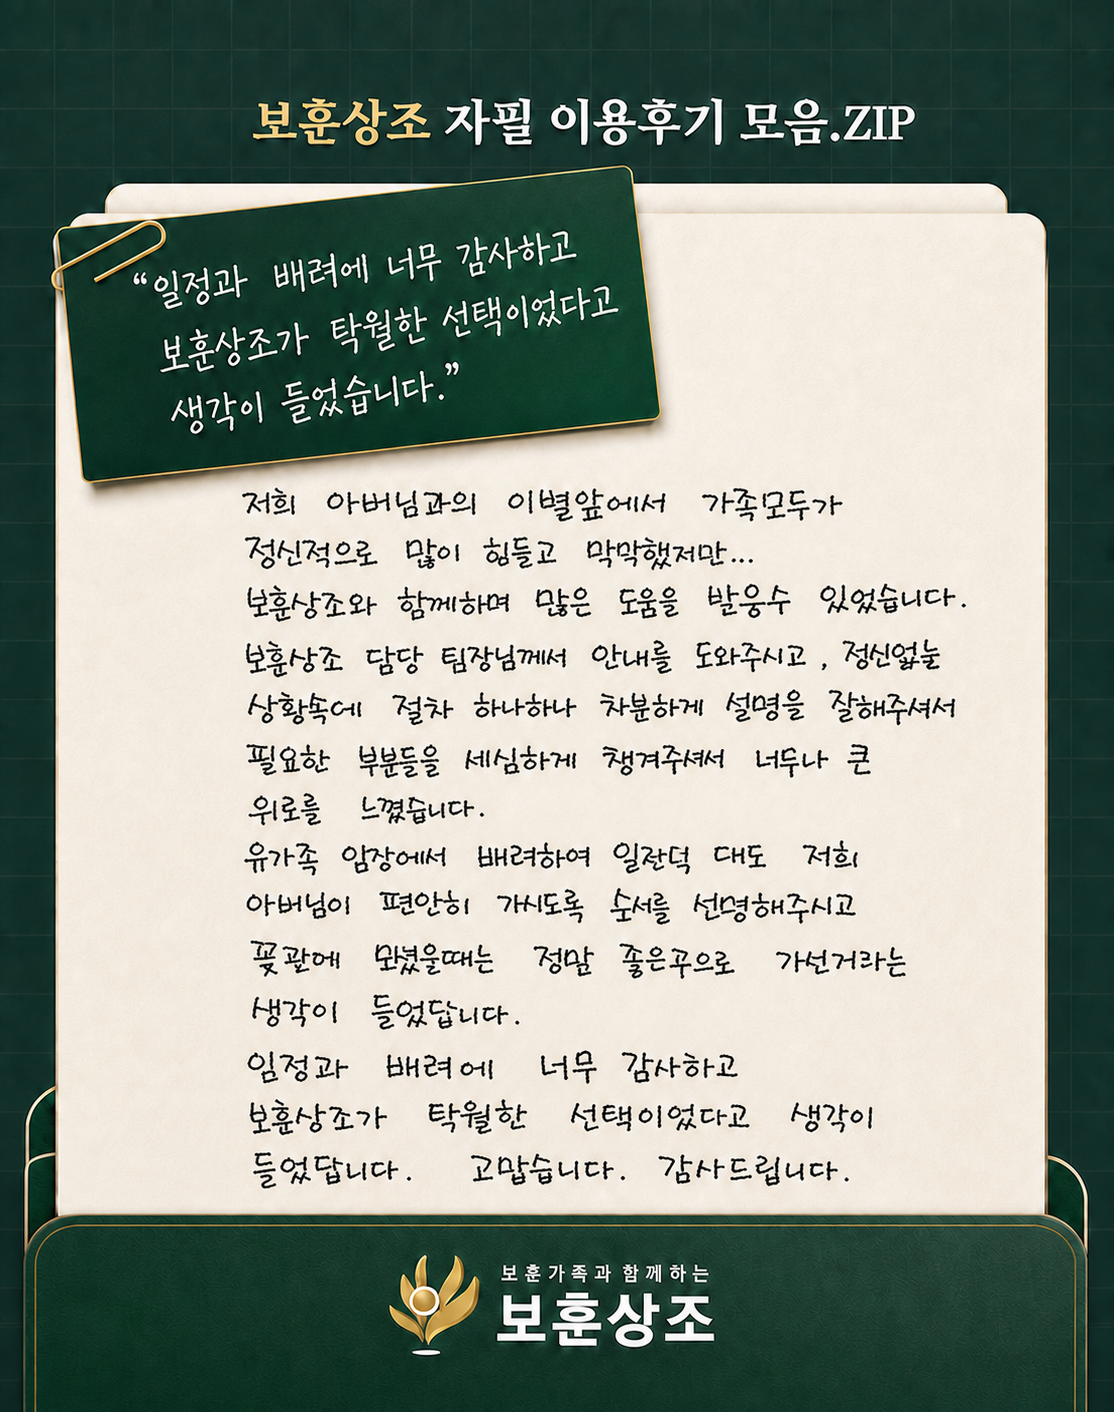 보훈상조 자필 이용후기 모음.ZIP
“일정과 배려에 너무 감사하고
보훈상조가 탁월한 선택이었다고
생각이 들었습니다.”
저희 아버님과의 이별앞에서 가족모두가
정신적으로 많이 힘들고 막막했지만...
보훈상조와 함께하며 많은 도움을 받을수 있었습니다.
보훈상조 담당 팀장님께서 안내를 도와주시고,
상황속에 절차 하나하나 차분하게 설명을 잘해주셔서
필요한 부분들을 세심하게 챙겨주셔서 너무나 큰
위로를 느꼈습니다.
유가족 입장에서 배려하여 대도 저희
아버님이 편안히 가시도록 순서를 선명해주시고
꽃관에 모셨을때는 정말 좋은곳으로 가신거라는
생각이 들었답니다.
일정과 배려에 너무 감사하고
보훈상조가 탁월한 선택이었다고 생각이
들었답니다. 고맙습니다. 감사드립니다.
보훈가족과 함께하는
보훈상조